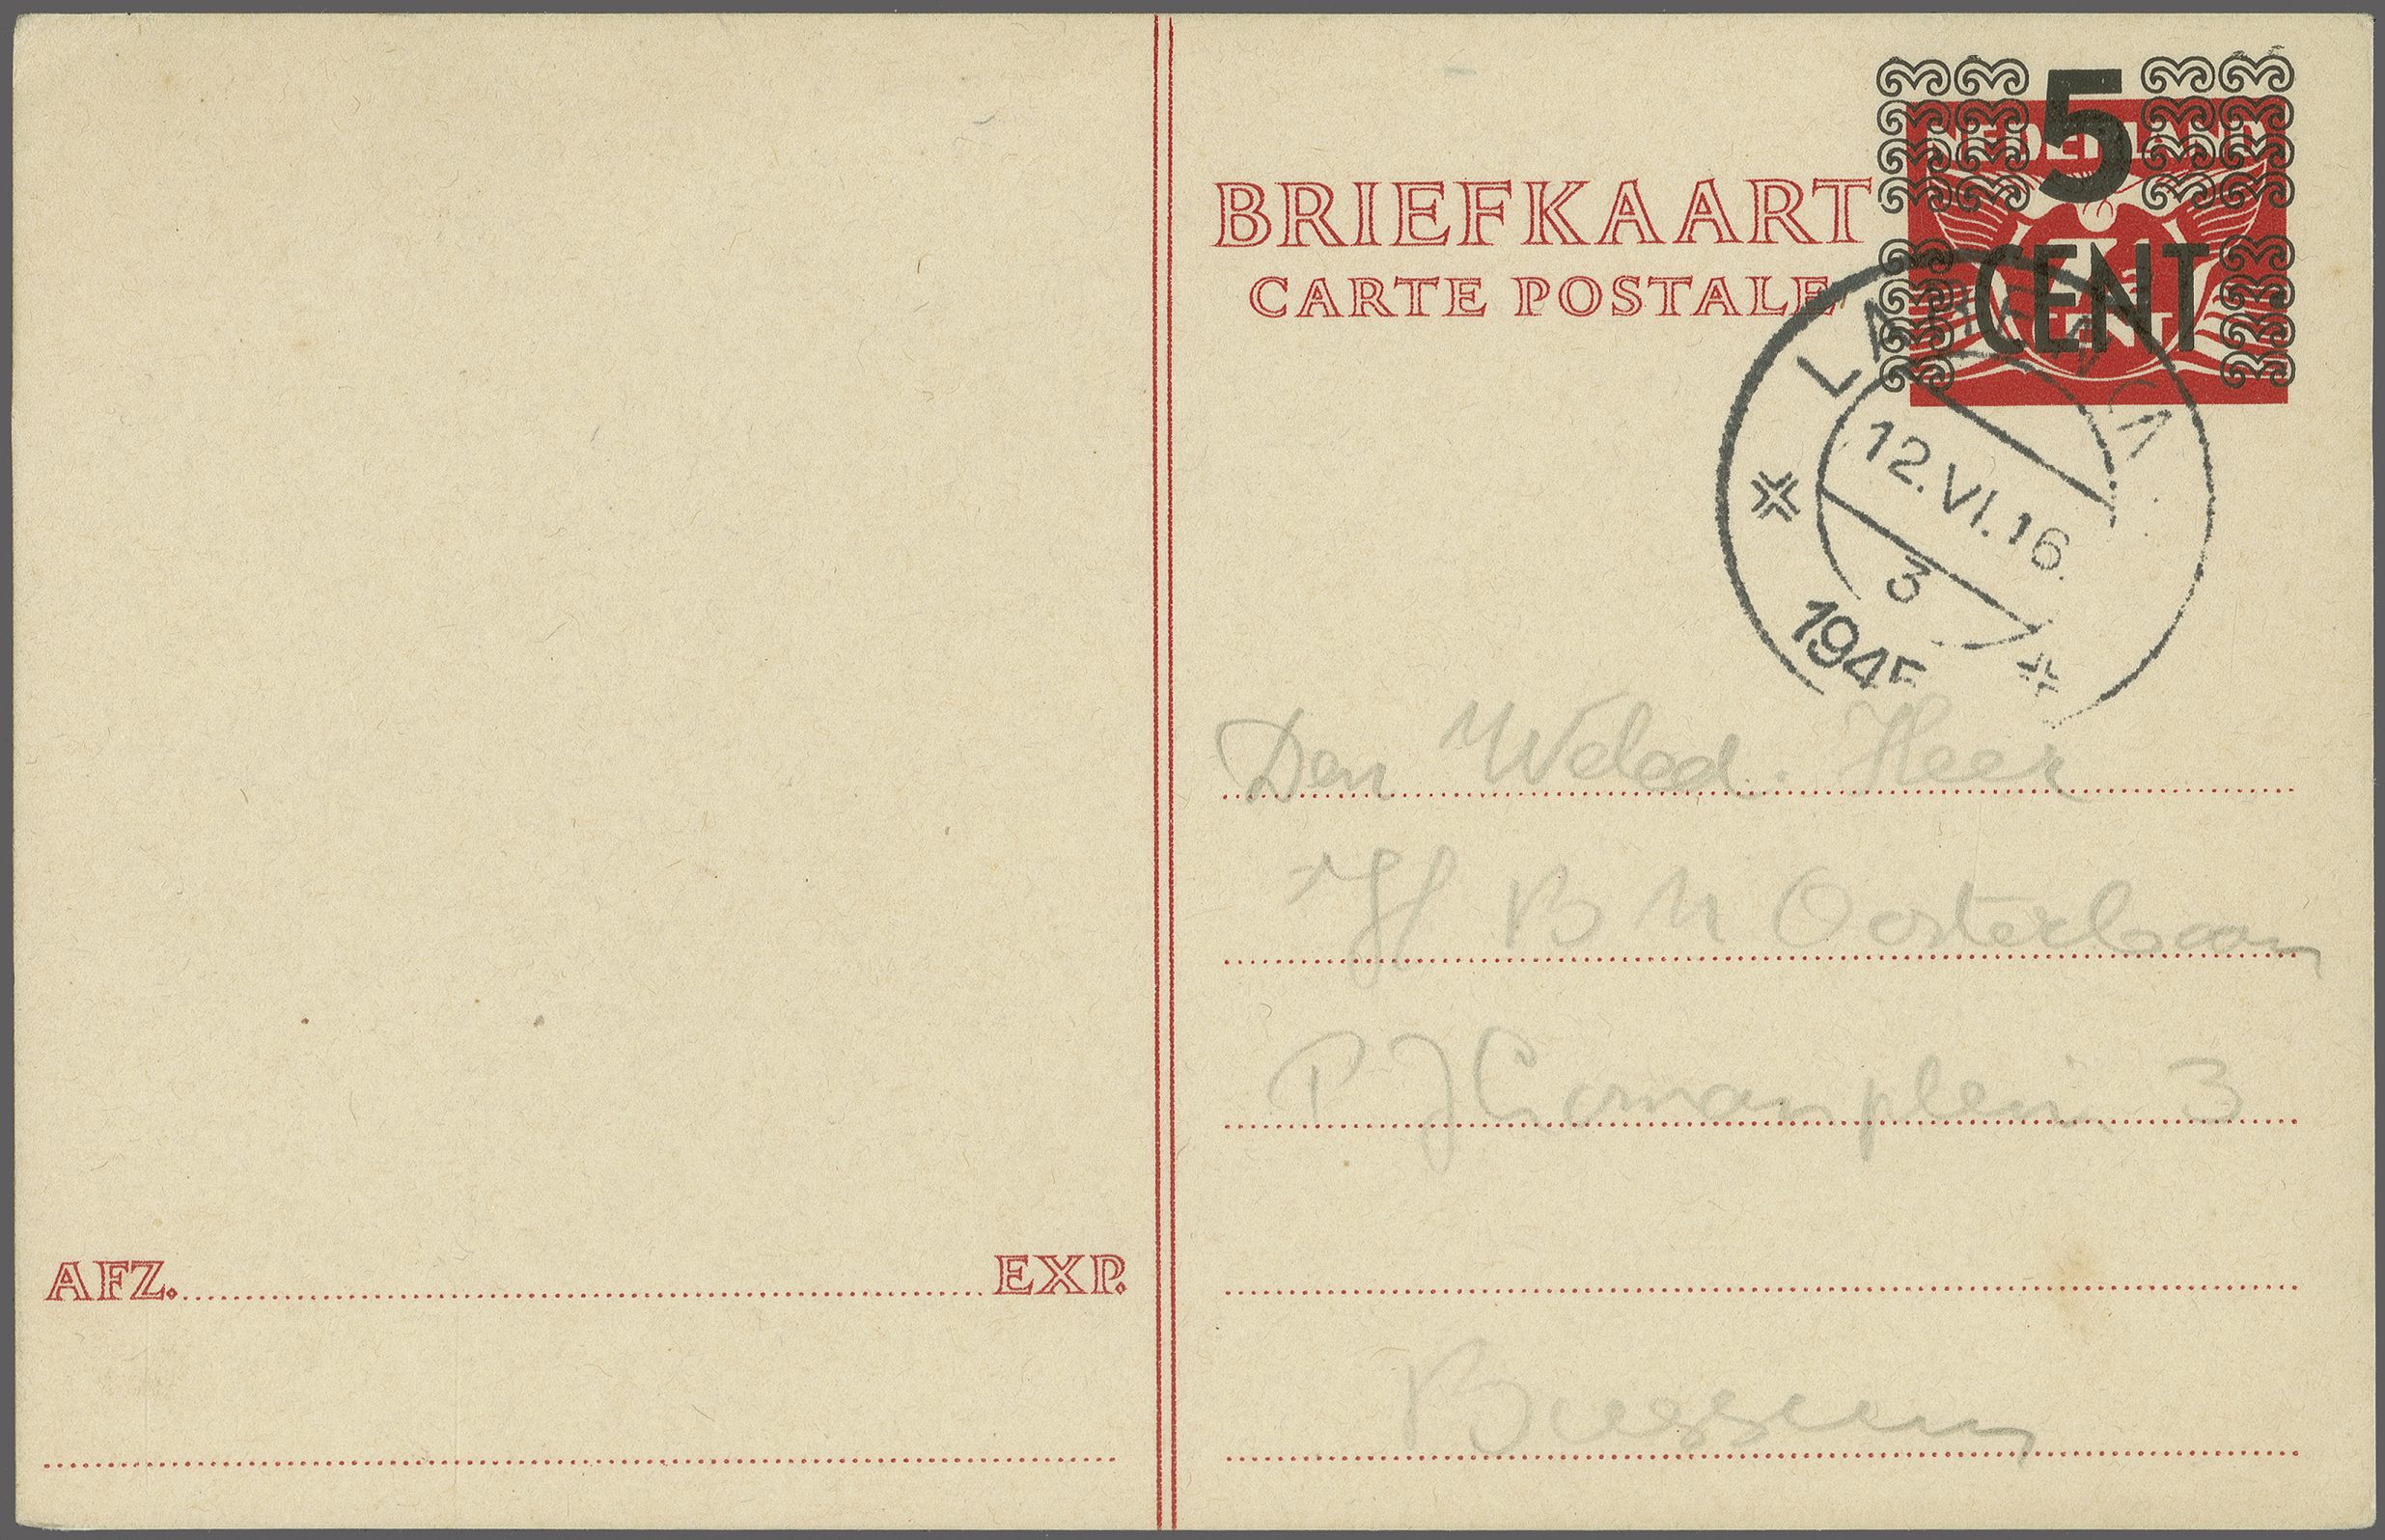 5
NEDERLAND
BRIEFKAART
CENT
CARTE POSTALE
12.VI.16.
3
1945
Den Weled. Heer
B N Oosterbaan
P J 3
Bussum
AFZ. EXP.